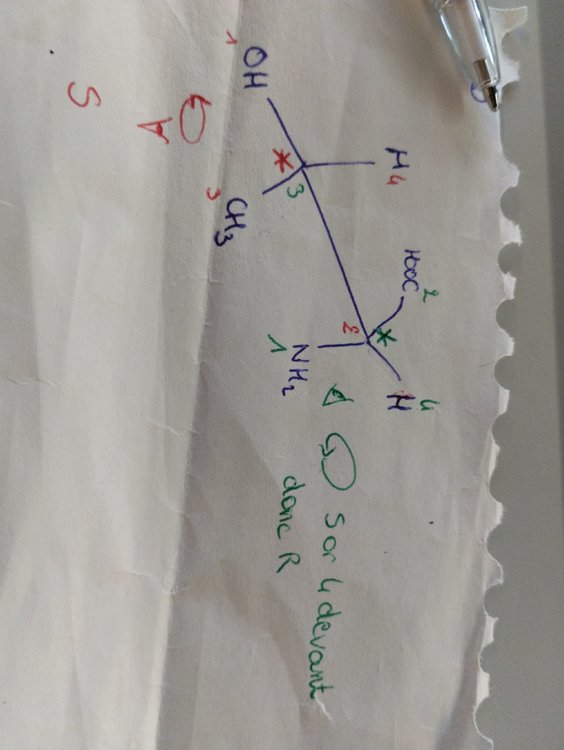 2
4
HOOC
H
H
4
*
2
3
*
S or 4 devant
NH₂
1
donc R
OH
CH₃
1
3
S